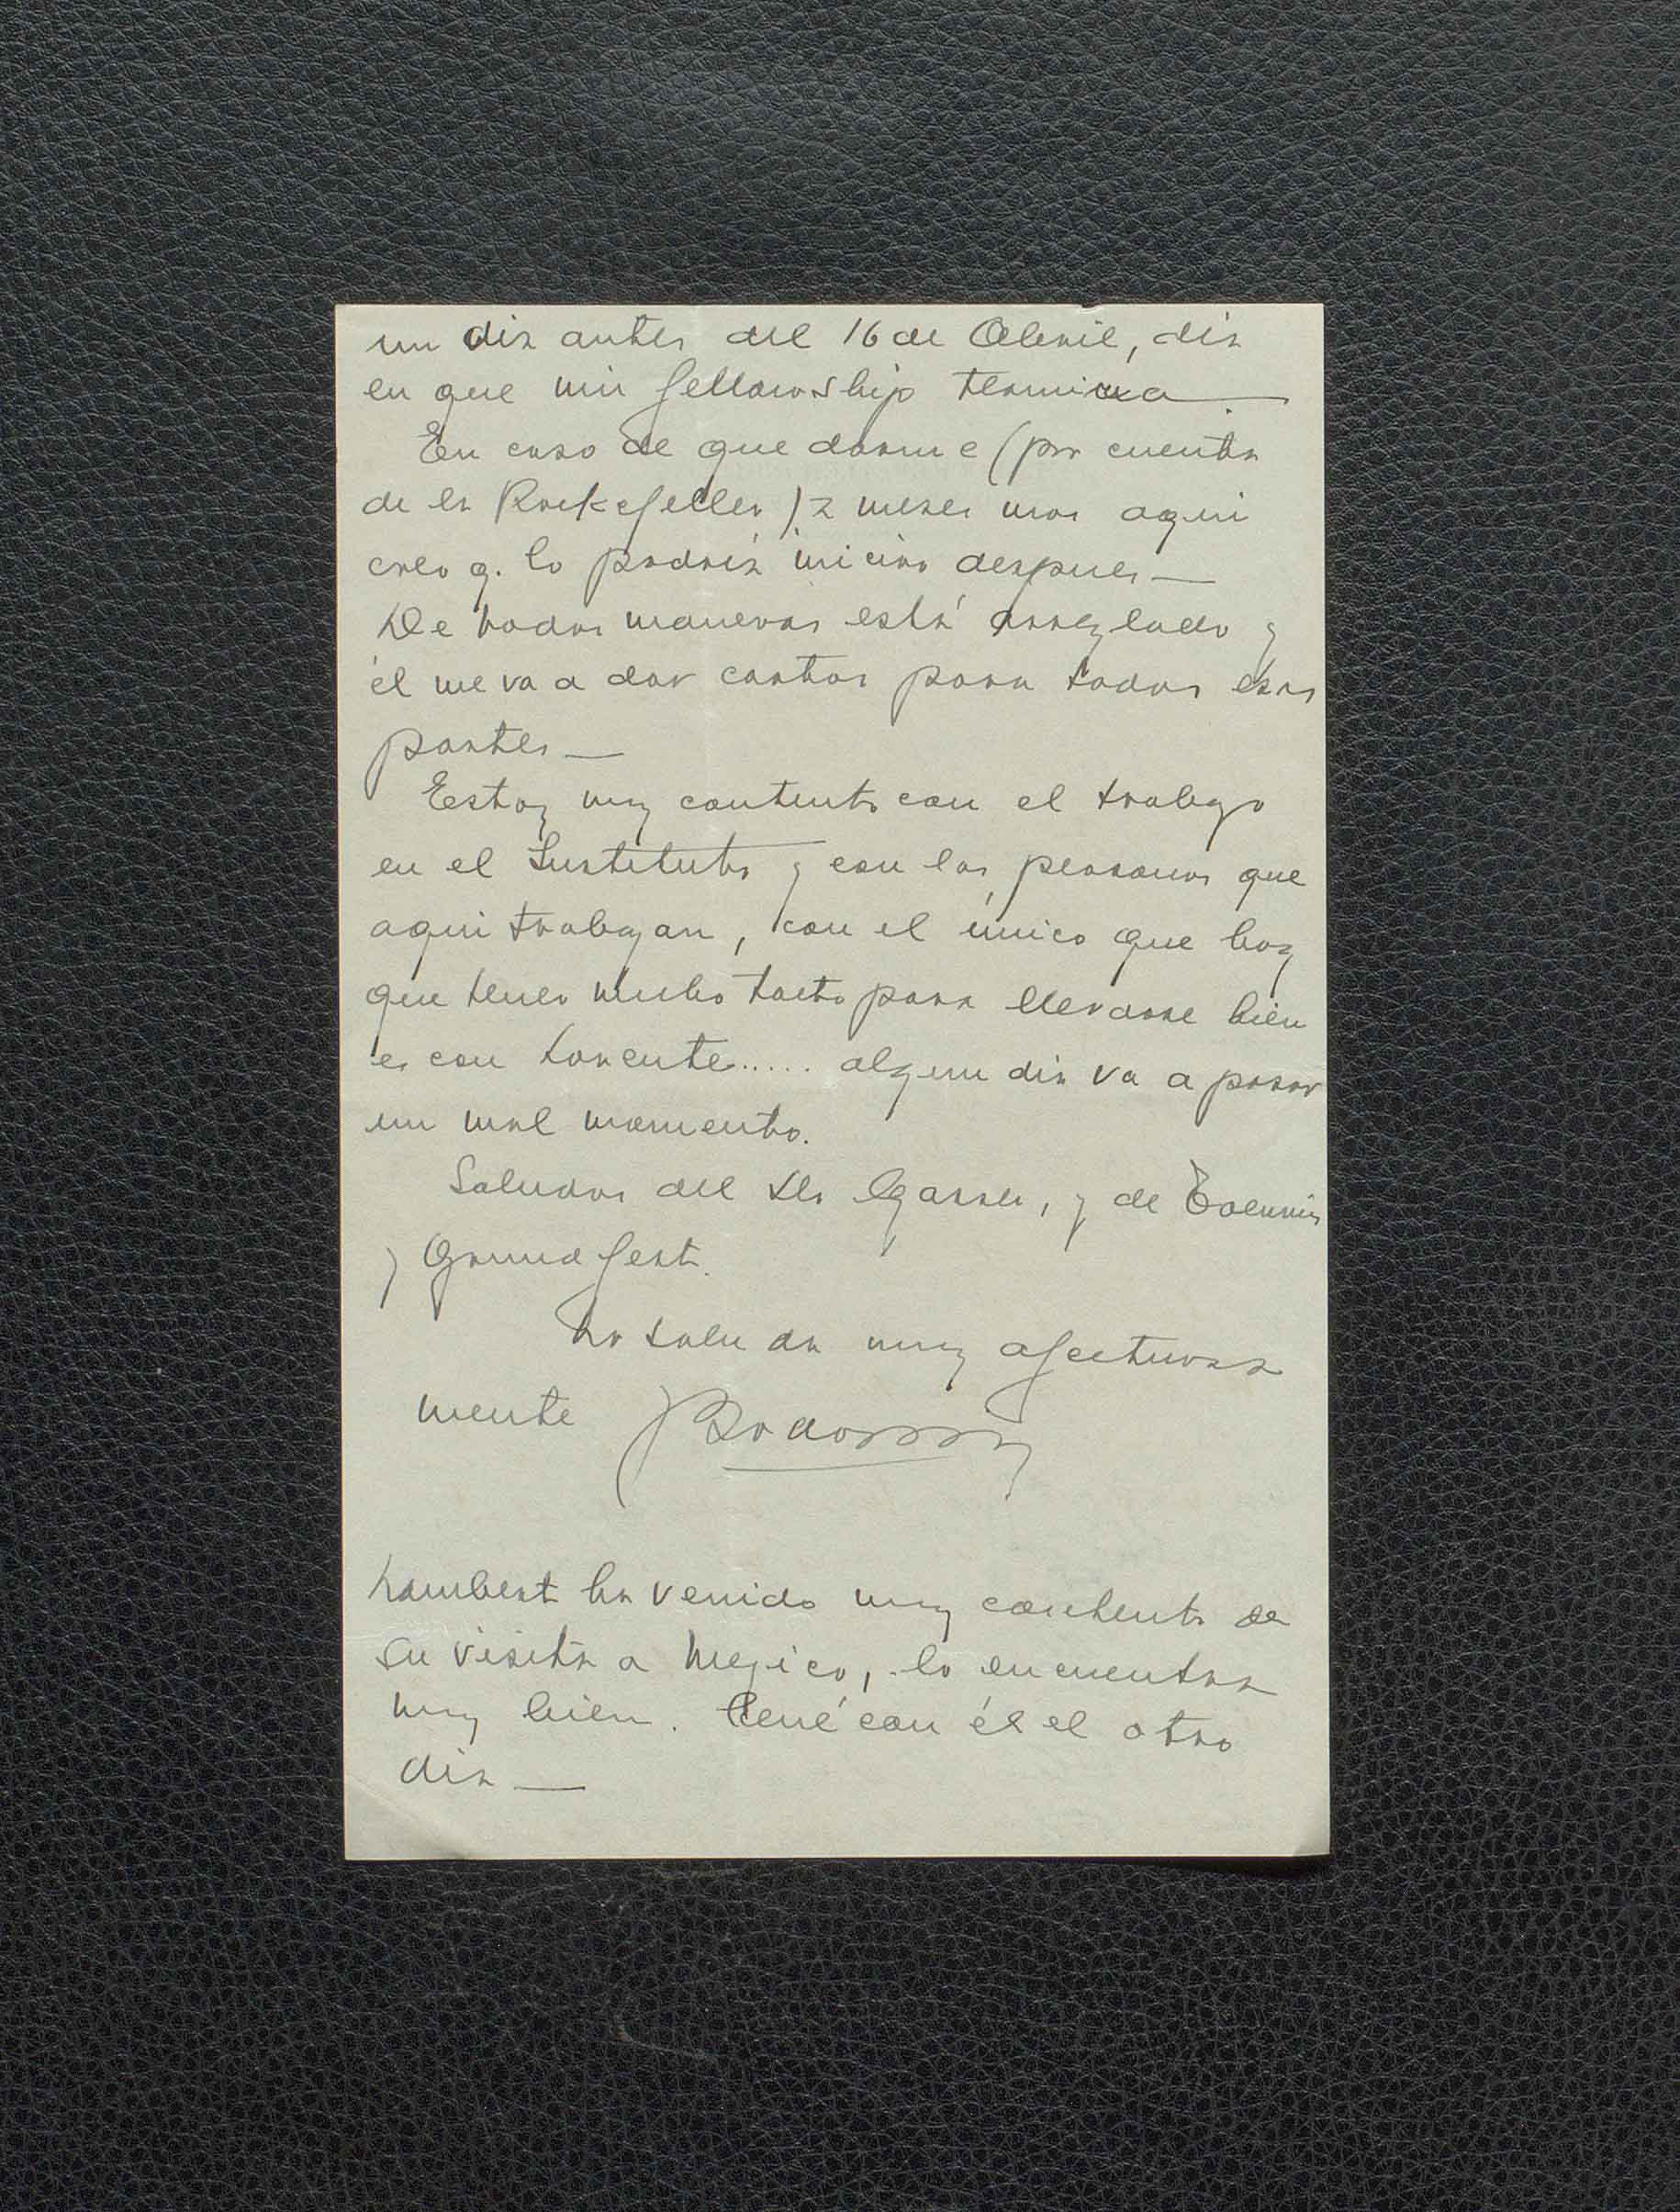 un dia antes del 16 de Abril, dia
en que mi fellowship termina
En caso de quedarme (por cuenta
de la Rockefeller) 2 meses mas aqui
creo q. lo podria iniciar despues—
De todas maneras está arreglado y
él me va a dar cartas para todas esas
partes—
Estoy muy contento con el trabajo
en el Instituto y con las personas que
aqui trabajan, con el único que hay
que tener mucho tacto para llevarse bien
es con Lorente..... algun dia va a pasar
un mal momento.
Saludos del Dr Gasser, y de Toennies
y Grundfest.
Lo saluda muy afectuosa
mente
Lambert ha venido muy contento de
su visita a Mejico, lo encuentra
muy bien. Cené con él el otro
dia—